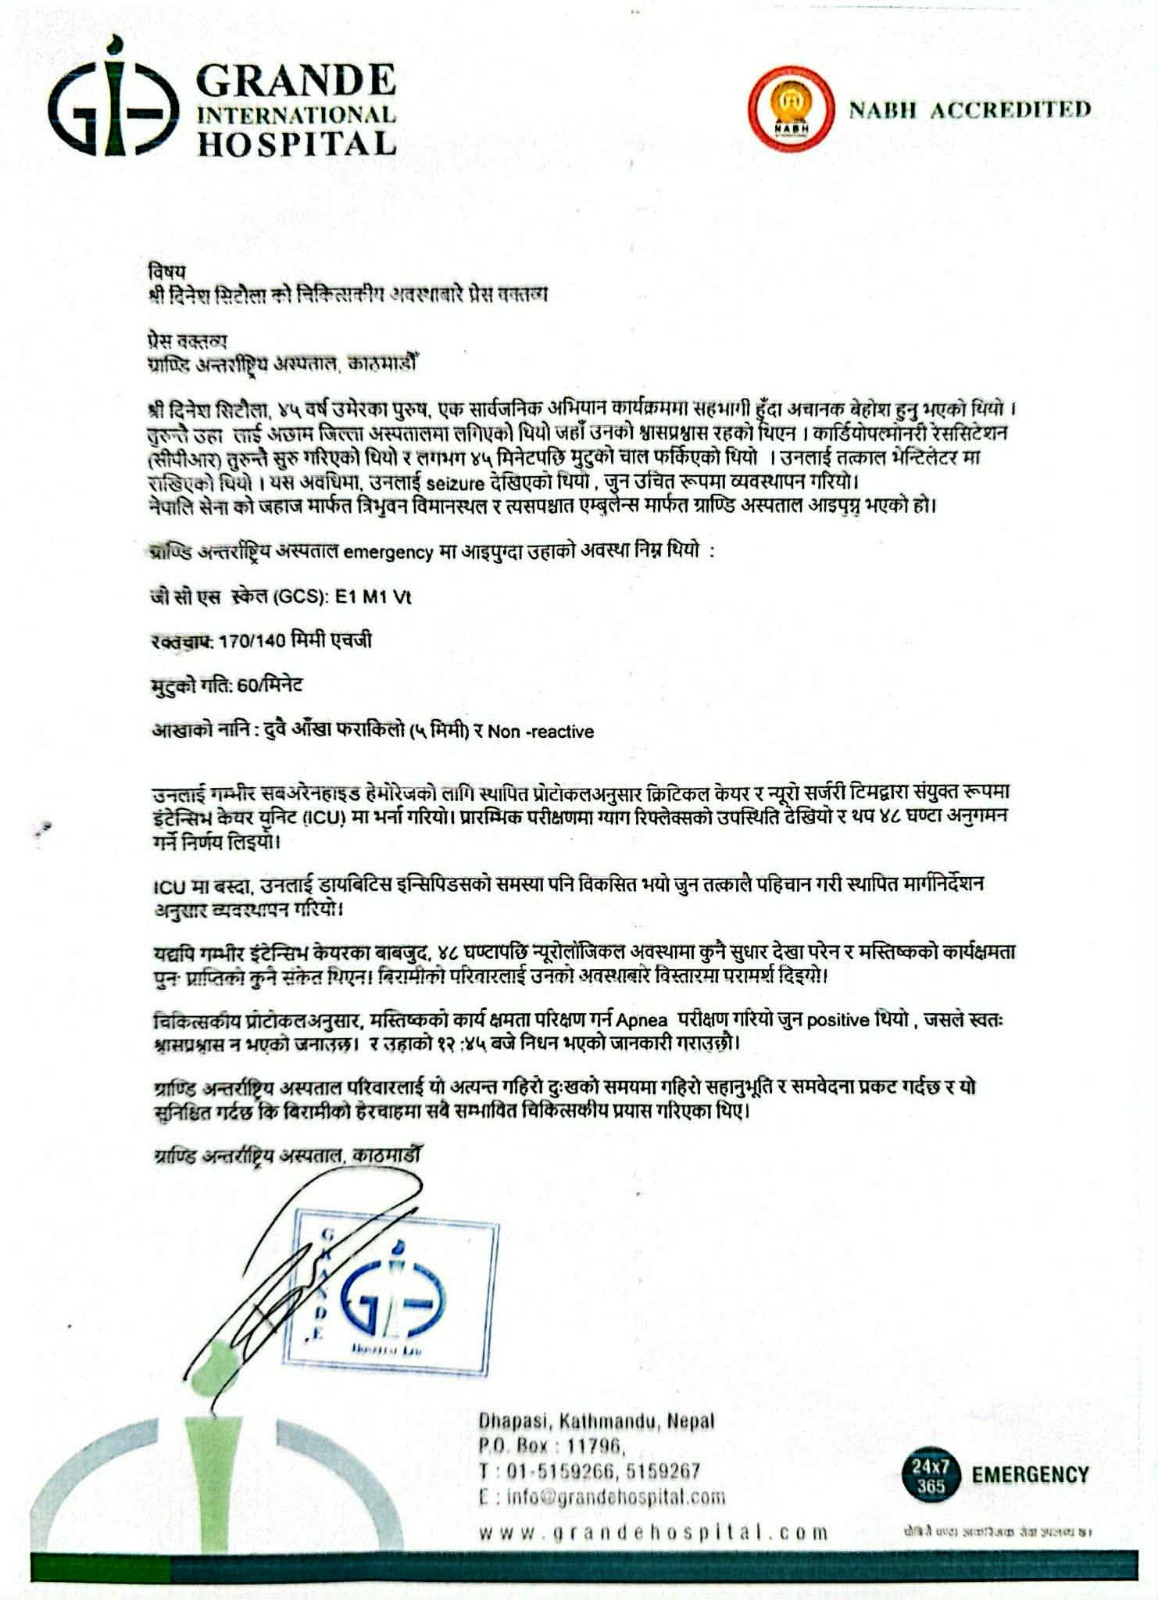 GRANDE
INTERNATIONAL
HOSPITAL
NABH
NABH ACCREDITED
विषय
श्री दिनेश सिटौला को चिकित्सकीय अवस्थाबारे प्रेस वक्तव्य
प्रेस वक्तव्य
ग्राण्डि अन्तर्राष्ट्रिय अस्पताल, काठमाडौँ
श्री दिनेश सिटौला, ४५ वर्ष उमेरका पुरुष, एक सार्वजनिक अभियान कार्यक्रममा सहभागी हुँदा अचानक बेहोश हुनु भएको थियो ।
तुरुन्तै उहा लाई अछाम जिल्ला अस्पतालमा लगिएको थियो जहाँ उनको श्वासप्रश्वास रहको थिएन । कार्डियोपल्मोनरी रेससिटेशन
(सीपीआर) तुरुन्तै सुरु गरिएको थियो र लगभग ४५ मिनेटपछि मुटुको चाल फर्किएको थियो । उनलाई तत्काल भेन्टिलेटर मा
राखिएको थियो । यस अवधिमा, उनलाई seizure देखिएको थियो , जुन उचित रूपमा व्यवस्थापन गरियो।
नेपालि सेना को जहाज मार्फत त्रिभुवन विमानस्थल र त्यसपश्चात एम्बुलेन्स मार्फत ग्राण्डि अस्पताल आइपुग्नु भएको हो।
ग्राण्डि अन्तर्राष्ट्रिय अस्पताल emergency मा आइपुग्दा उहाको अवस्था निम्न थियो :
जी सी एस स्केल (GCS): E1 M1 Vt
रक्तचाप: 170/140 मिमी एचजी
मुटुको गति: 60/मिनेट
आखाको नानि : दुवै आँखा फराकिलो (५ मिमी) र Non -reactive
उनलाई गम्भीर सबअरेनहाइड हेमोरेजको लागि स्थापित प्रोटोकलअनुसार क्रिटिकल केयर र न्यूरो सर्जरी टिमद्वारा संयुक्त रूपमा
इंटेन्सिभ केयर युनिट (ICU) मा भर्ना गरियो। प्रारम्भिक परीक्षणमा ग्याग रिफ्लेक्सको उपस्थिति देखियो र थप ४८ घण्टा अनुगमन
गर्ने निर्णय लिइयो।
ICU मा बस्दा, उनलाई डायबिटिस इन्सिपिडसको समस्या पनि विकसित भयो जुन तत्कालै पहिचान गरी स्थापित मार्गनिर्देशन
अनुसार व्यवस्थापन गरियो।
यद्यपि गम्भीर इंटेन्सिभ केयरका बाबजुद, ४८ घण्टापछि न्यूरोलॉजिकल अवस्थामा कुनै सुधार देखा परेन र मस्तिष्कको कार्यक्षमता
पुनः प्राप्तिको कुनै संकेत थिएन। बिरामीको परिवारलाई उनको अवस्थाबारे विस्तारमा परामर्श दिइयो।
चिकित्सकीय प्रोटोकलअनुसार, मस्तिष्कको कार्य क्षमता परिक्षण गर्न Apnea परीक्षण गरियो जुन positive थियो , जसले स्वतः
श्वासप्रश्वास न भएको जनाउछ। र उहाको १२ :४५ बजे निधन भएको जानकारी गराउछौ।
ग्राण्डि अन्तर्राष्ट्रिय अस्पताल परिवारलाई यो अत्यन्त गहिरो दुःखको समयमा गहिरो सहानुभूति र समवेदना प्रकट गर्दछ र यो
सुनिश्चित गर्दछ कि बिरामीको हेरचाहमा सबै सम्भावित चिकित्सकीय प्रयास गरिएका थिए।
ग्राण्डि अन्तर्राष्ट्रिय अस्पताल, काठमाडौँ
GRANDE
Hospital Ltd
Dhapasi, Kathmandu, Nepal
P.O. Box : 11796,
T : 01-5159266, 5159267
E : info@grandehospital.com
www.grandehospital.com
24x7
365
EMERGENCY